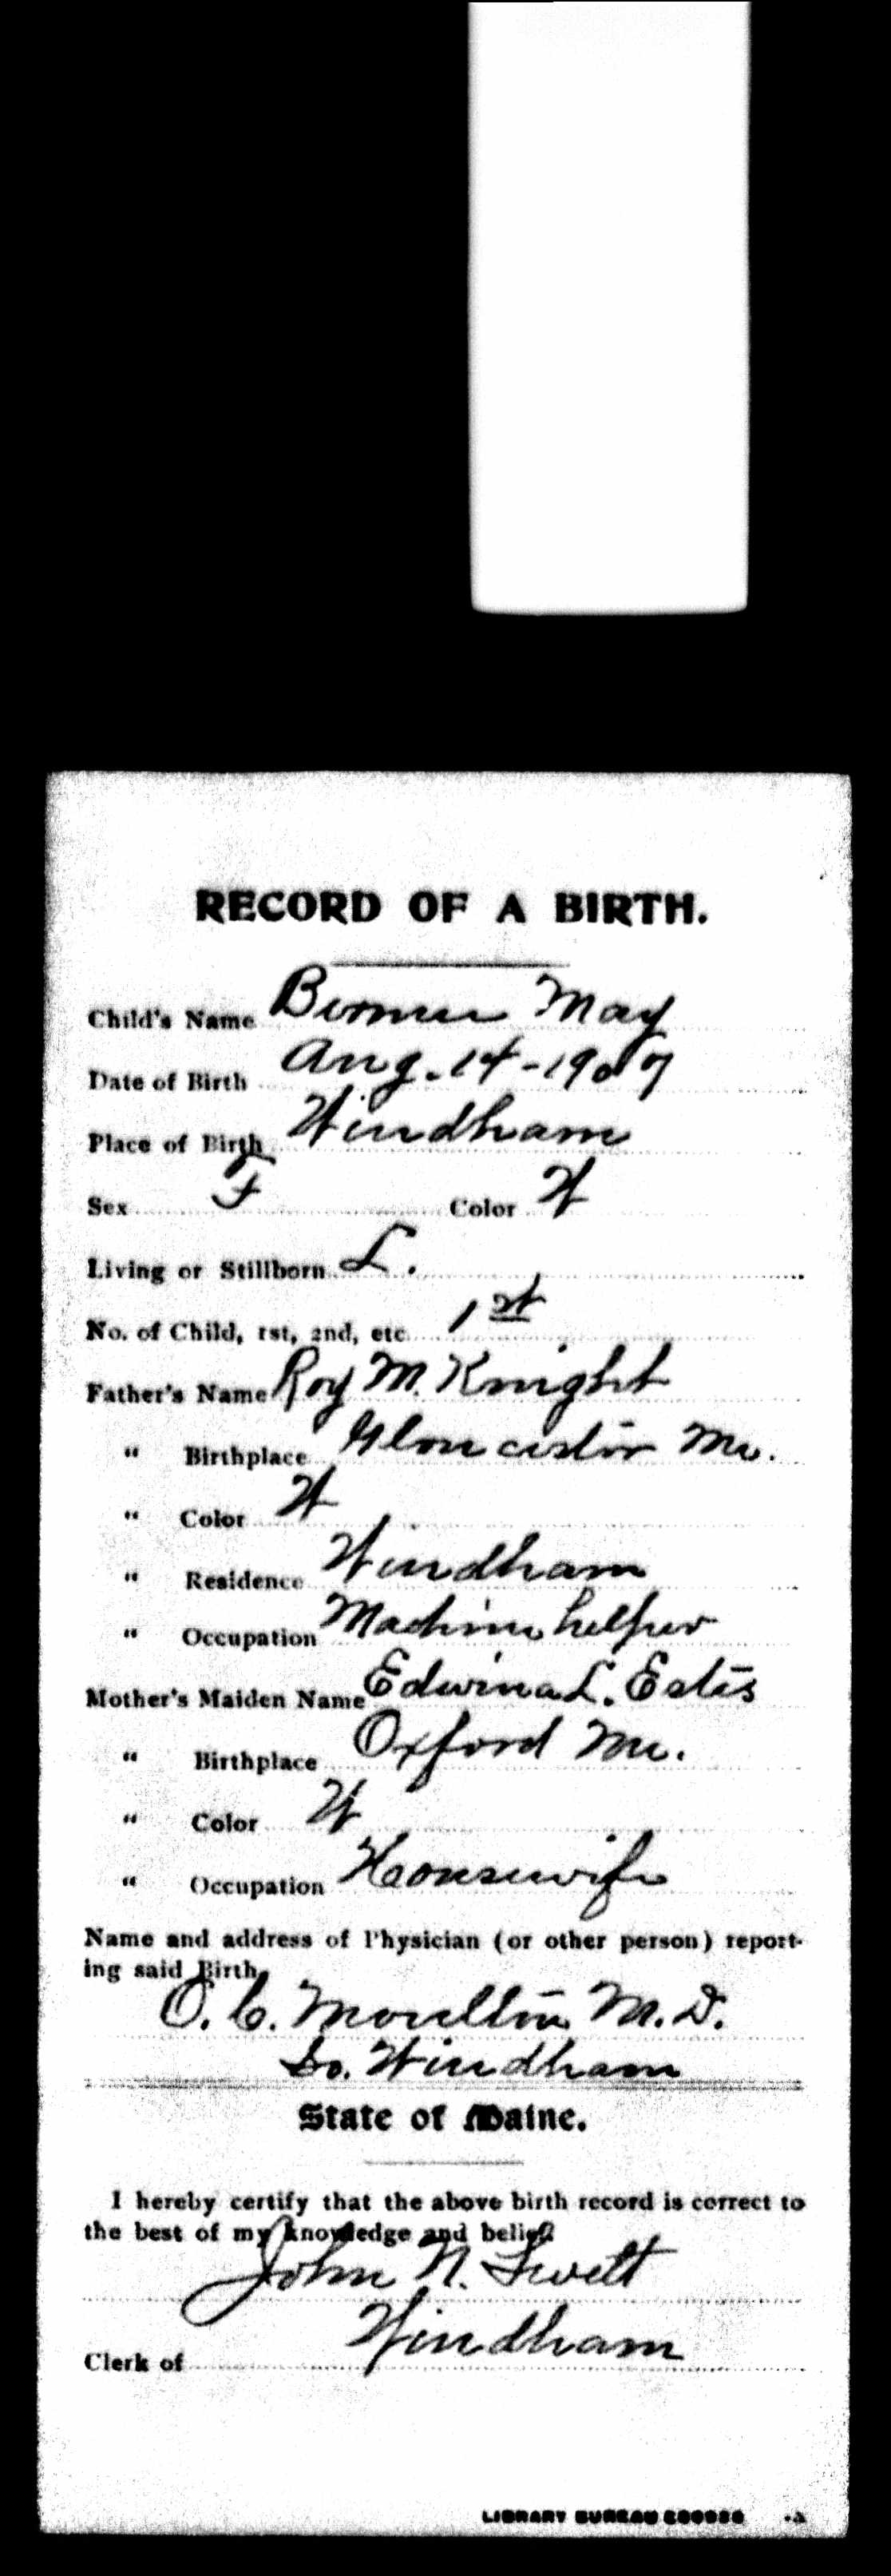 RECORD OF A BIRTH.
Child's Name May
Date of Birth Aug. 14-1907
Place of Birth Windham
Sex F Color W
Living or Stillborn L.
No. of Child, 1st, 2nd, etc. 1st
Father's Name Roy M. Knight
" Birthplace Me.
" Color W
" Residence Windham
" Occupation Machine helper
Mother's Maiden Name Edwina L. Estes
" Birthplace Oxford Me.
" Color W
" Occupation Housewife
Name and address of Physician (or other person) report-
ing said Birth
O. C. Moulton M.D.
So. Windham
State of Maine.
I hereby certify that the above birth record is correct to
the best of my knowledge and belief.
John N. Swett
Clerk of Windham
LIBRARY BUREAU